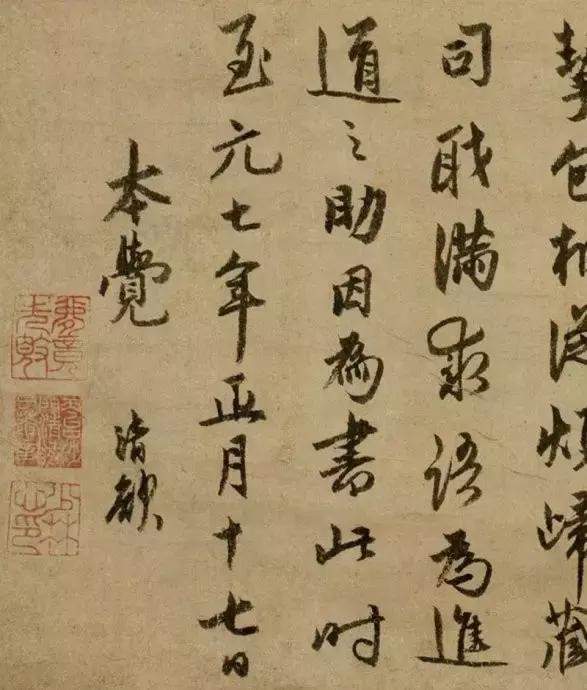 挈包相從歸藏
司職滿求語為進
道之助因為書此時
至元七年正月十七日
本覺 清欲